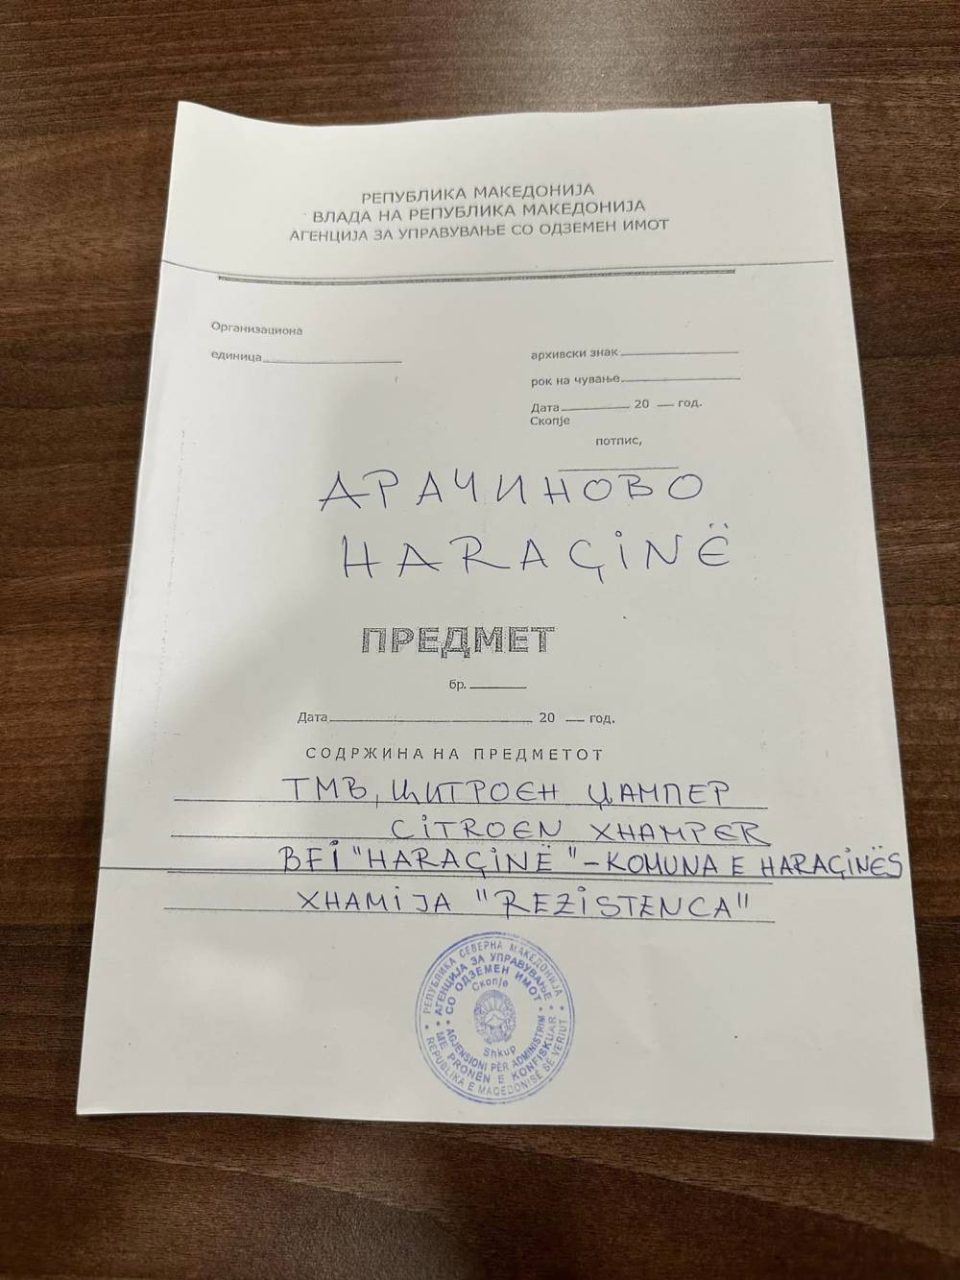 РЕПУБЛИКА МАКЕДОНИЈА
ВЛАДА НА РЕПУБЛИКА МАКЕДОНИЈА
АГЕНЦИЈА ЗА УПРАВУВАЊЕ СО ОДЗЕМЕН ИМОТ
Организациона
единица
архивски знак
рок на чување
Дата 20 год.
Скопје
потпис,
АРАЧИНОВО
HARAÇINË
ПРЕДМЕТ
бр.
Дата 20 год.
СОДРЖИНА НА ПРЕДМЕТОТ
ТМВ, ЦИТРОЕН ЏАМПЕР
CITROEN XHAMPER
BFI "HARAÇINË" - KOMUNA E HARAÇINËS
XHAMIJA "REZISTENCA"
РЕПУБЛИКА СЕВЕРНА МАКЕДОНИЈА
АГЕНЦИЈА ЗА УПРАВУВАЊЕ
СО ОДЗЕМЕН ИМОТ
Скопје
Shkup
AGJENSIONI PËR ADMINISTRIM
ME PRONËN E KONFISKUAR
REPUBLIKA E MAQEDONISË SË VERIUT